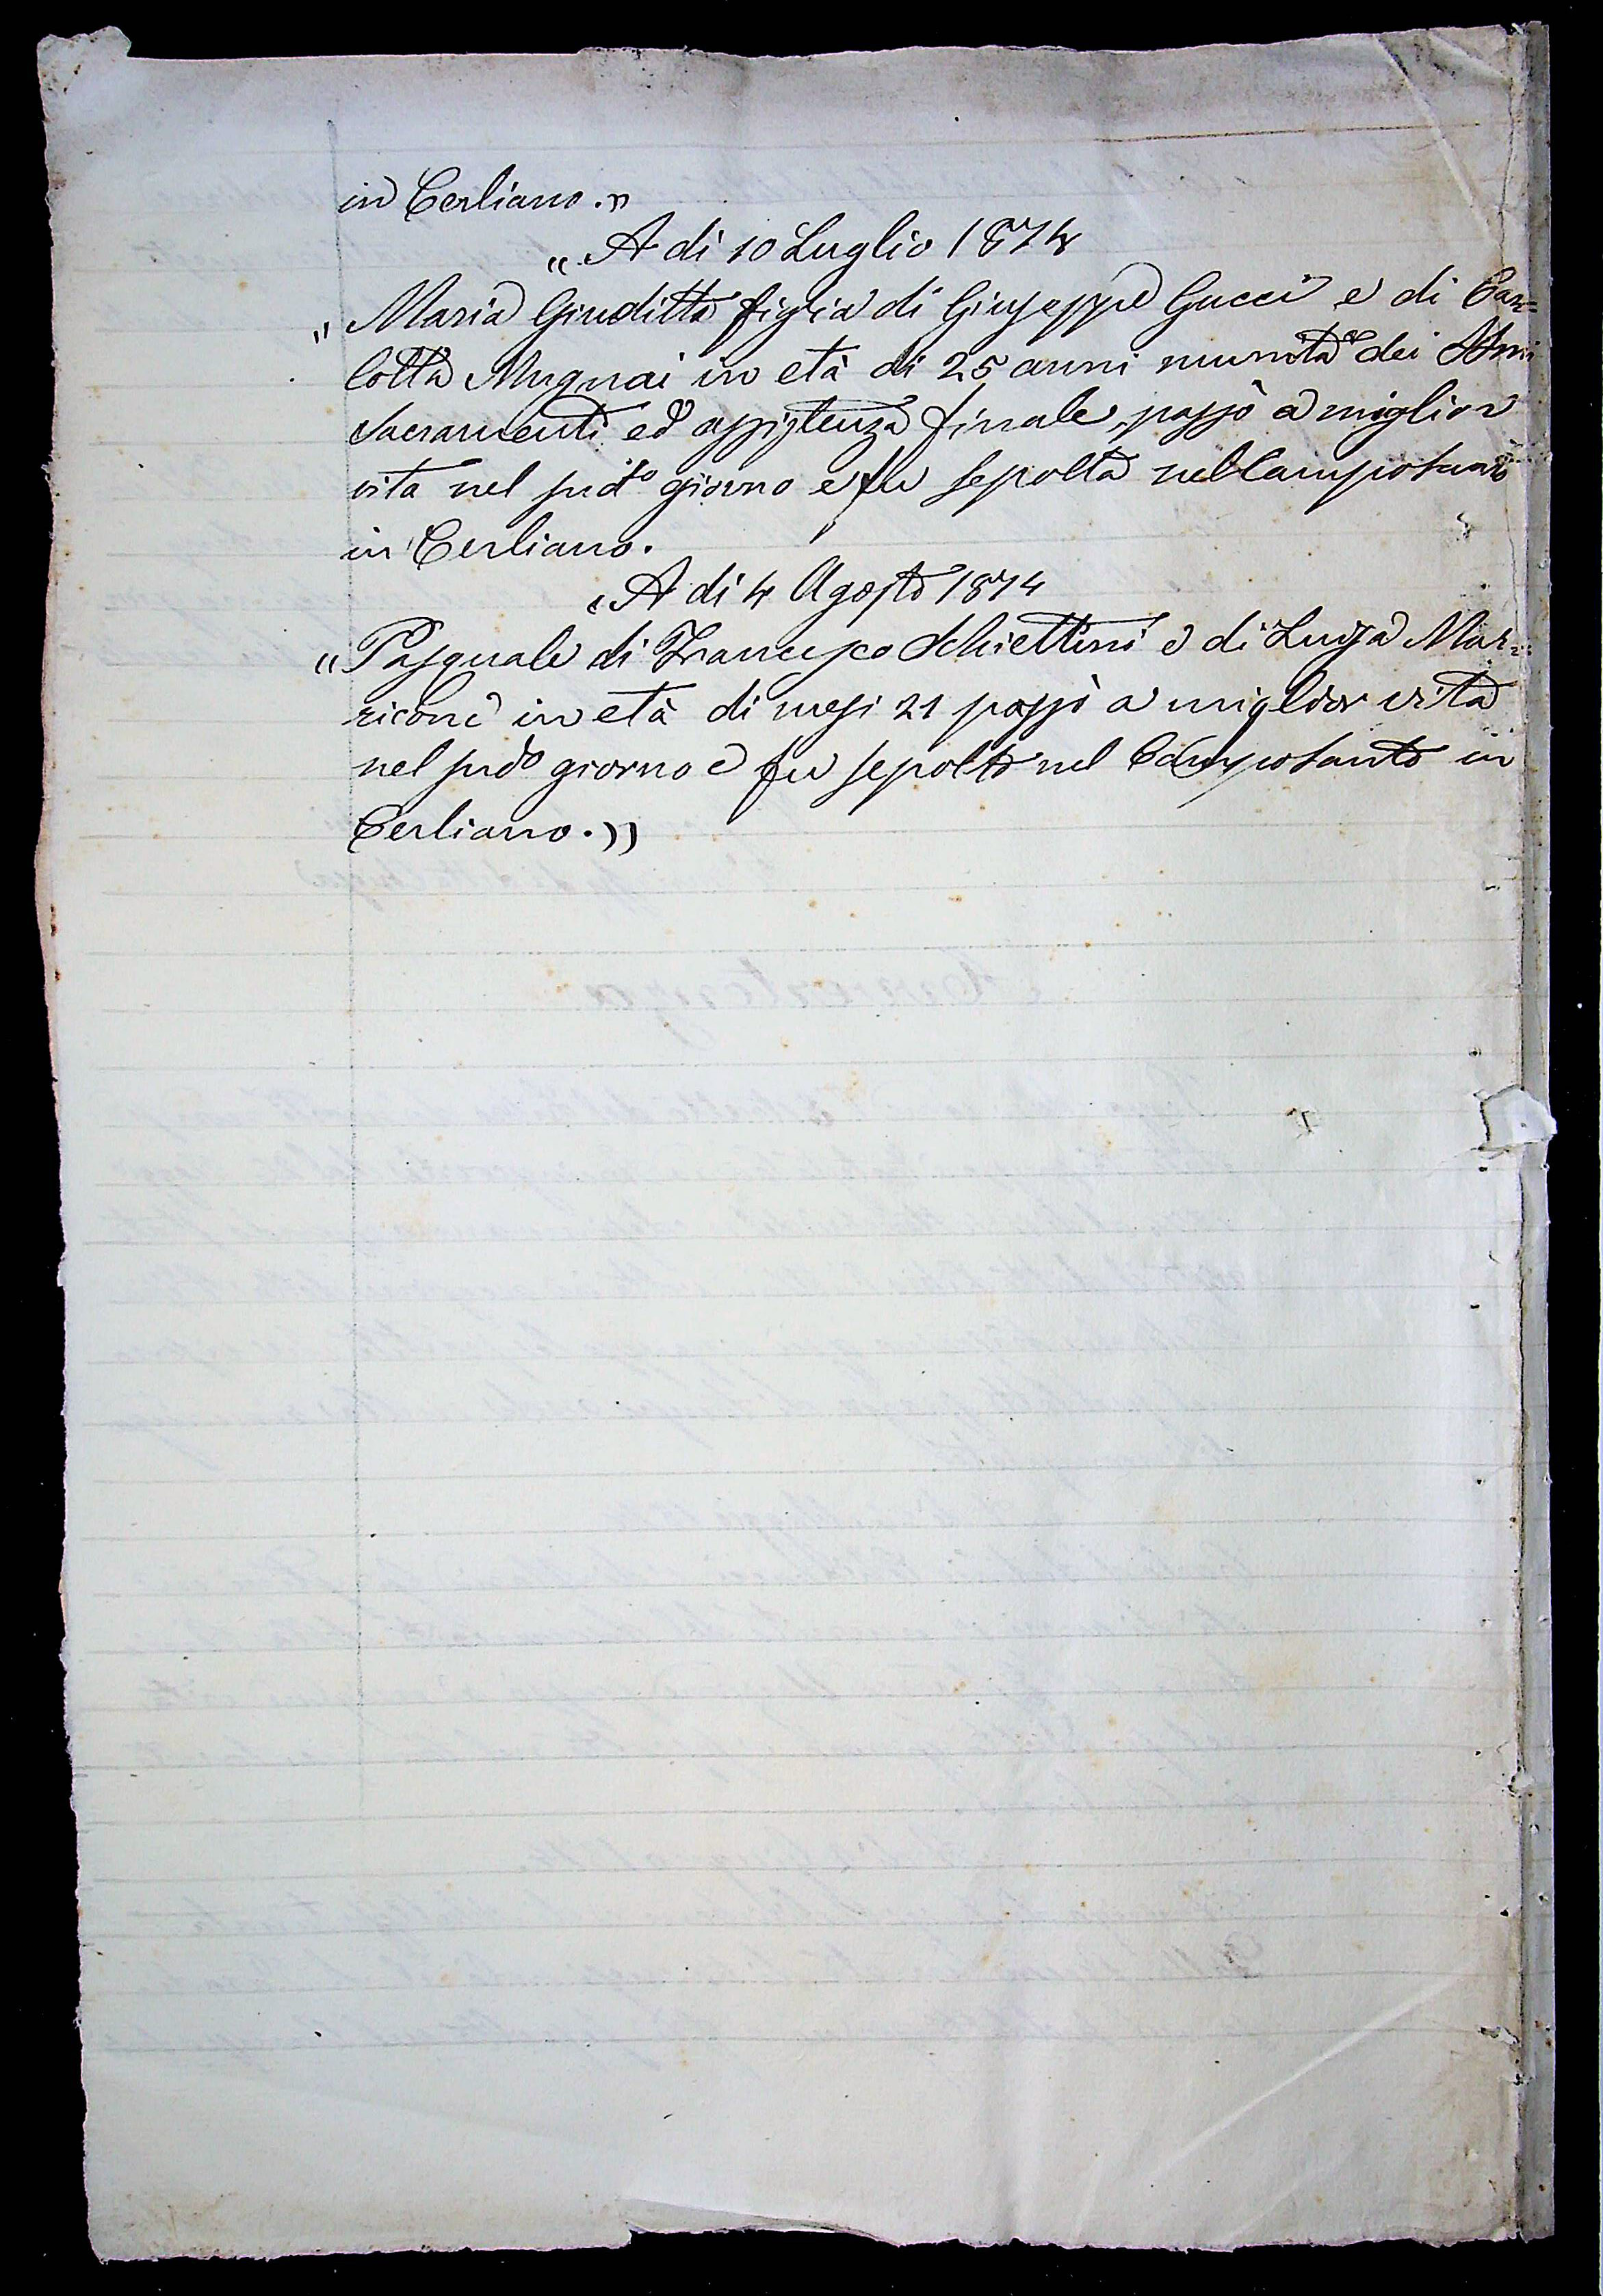 in Cerliano.»
„A di 10 Luglio 1874
„Maria Giuditta figlia di Giuseppe Gucci e di Car=
lotta Mugnai in età di 25 anni munita dei SSmi
Sacramenti ed assistenza finale, passò a miglior
vita nel sudto giorno e fu sepolta nel Camposanto
in Cerliano.
„A di 4 Agosto 1874
„Pasquale di Francesco Schiettini e di Luisa Mar=
riconi in età di mesi 21 passò a miglior vita
nel sudo giorno e fu sepolto nel Camposanto in
Cerliano.»